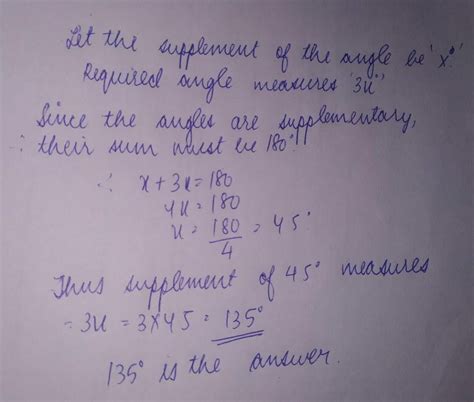 Let the supplement of the angle be 'x°'
Required angle measures '3x'
Since the angles are supplementary,
∴ their sum must be 180°.
∴ x + 3x = 180
4x = 180
x = 180/4 = 45°
Thus supplement of 45° measures
= 3x = 3×45 = 135°
135° is the answer.